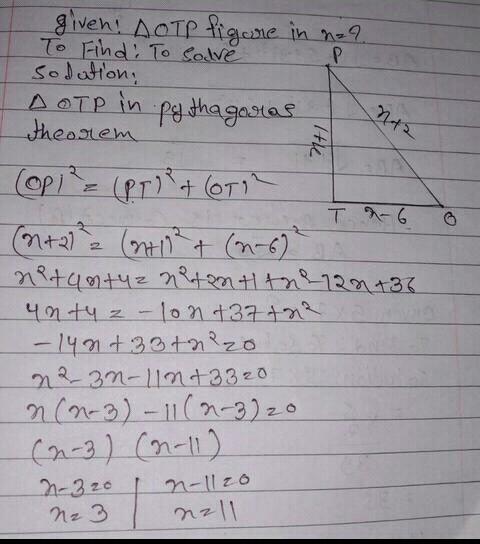 given: △OTP figare in x=?
To Find: To solve
solution:
△ OTP in pythagoras
theorem
P
x+1
x+2
T x-6 O
(OP)² = (PT)² + (OT)²
(x+2)² = (x+1)² + (x-6)²
x²+4x+4 = x²+2x+1+x²-12x+36
4x+4 = -10x+37+x²
-14x+33+x²=0
x²-3x-11x+33=0
x(x-3) -11(x-3)=0
(x-3) (x-11)
x-3=0 | x-11=0
x=3 | x=11